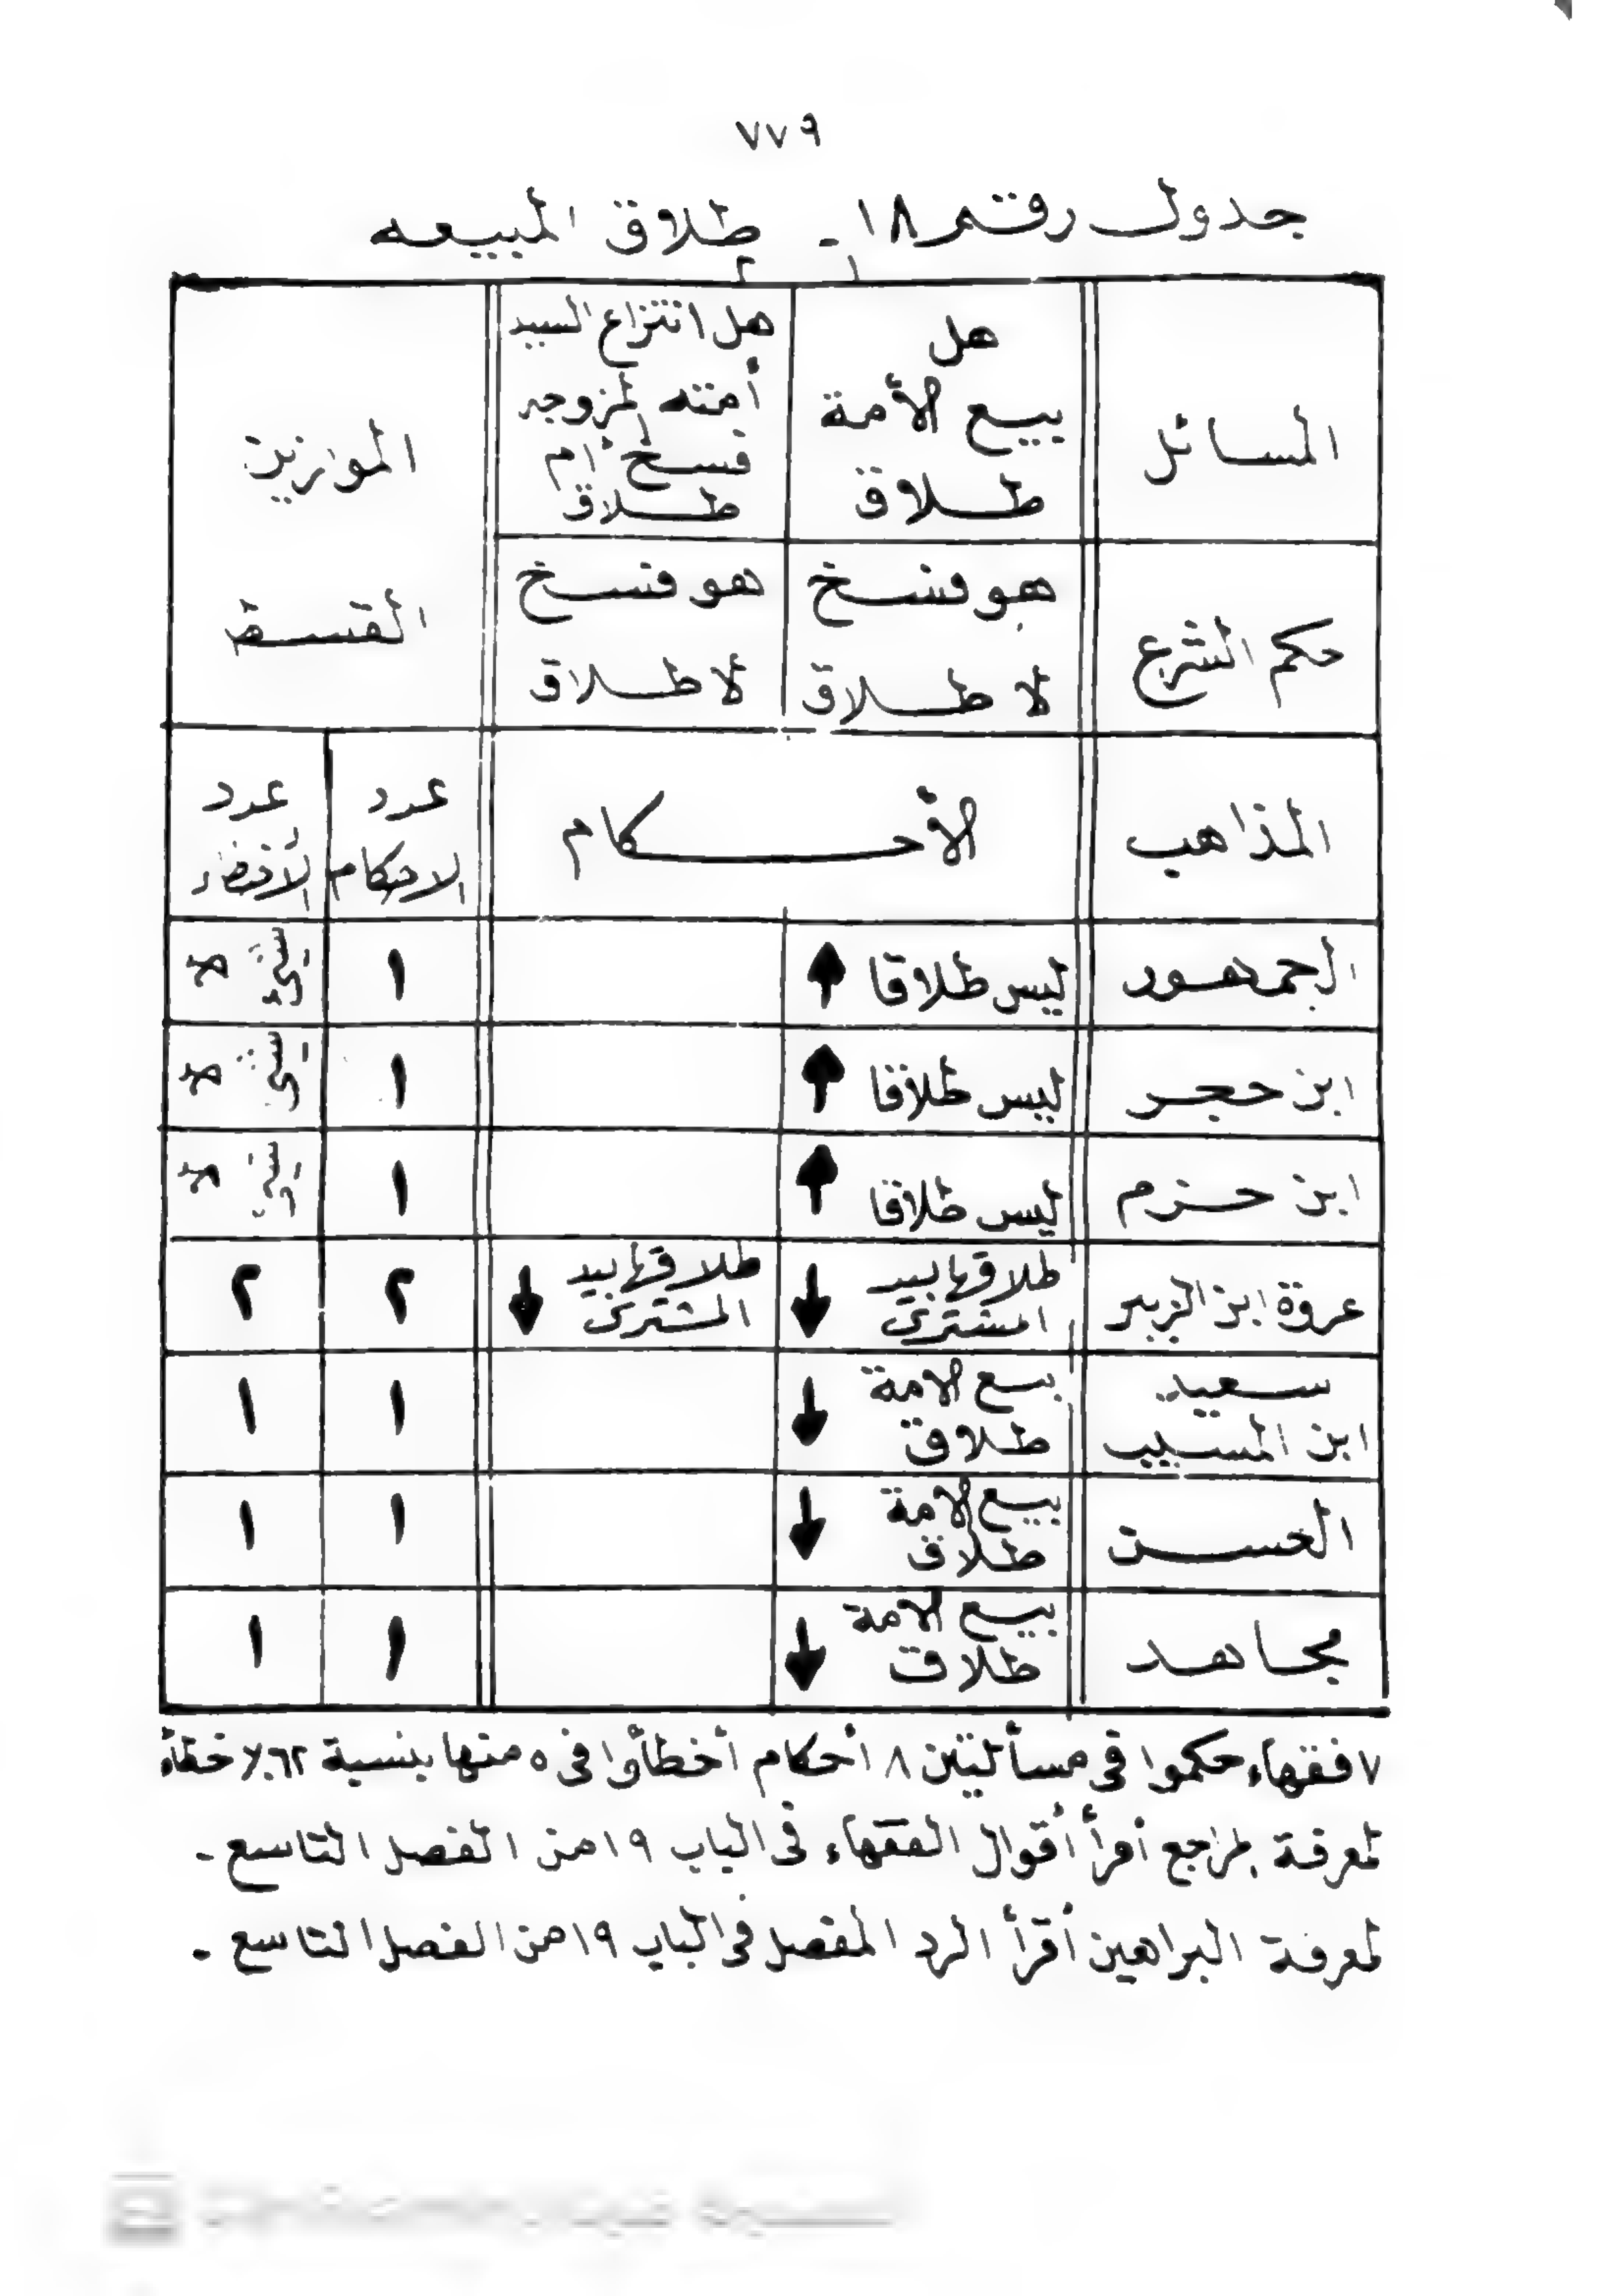 ٧٧٩
جدول رقم ١٨ - طلاق المبيعه
١
٢
المسائل
هل
بيع الأمة
طلاق
هل انتزاع السيد
أمته لمزوجه
فسخ أم
طلاق
الموازين
القسط
حكم الشرع
هو فسخ
لا طلاق
هو فسخ
لا طلاق
المذاهب
الأحكام
عدد
الاحكام
عدد
الأخطاء
الجمهور
ليس طلاقا
١
لا شئ
ابن حجر
ليس طلاقا
١
لا شئ
ابن حزم
ليس طلاقا
١
لا شئ
عروة ابن الزبير
طلاقها بيد
المشترى
طلاقها بيد
المشترى
٢
٢
سعيد
ابن المسيب
بيع الامة
طلاق
١
١
الحسن
بيع الامة
طلاق
١
١
مجاهد
بيع الامة
طلاق
١
١
٧ فقهاء حكموا فى مسألتين ٨ أحكام أخطأوا فى ٥ منها بنسبة ٦٢٪ خطأ
لمعرفة المراجع أقرأ أقوال الفقهاء فى الباب ١٩ من الفصل التاسع -
لمعرفة البراهين أقرأ الرد المفصل فى الباب ١٩ من الفصل التاسع -